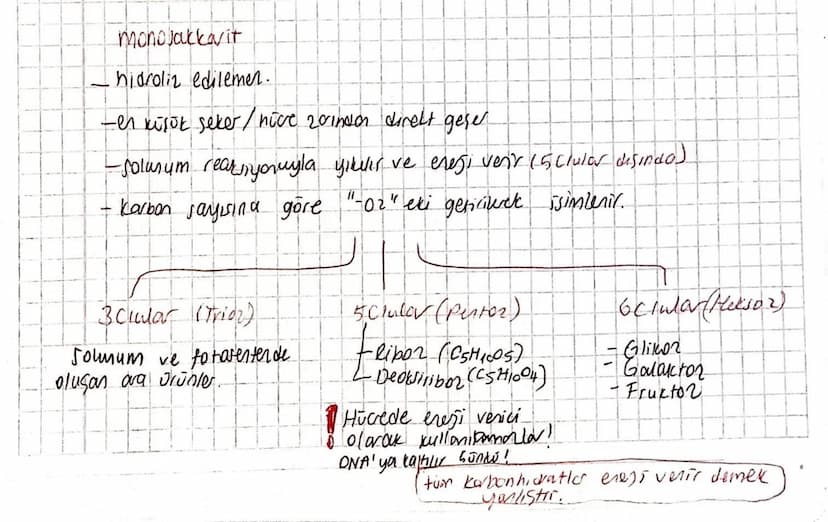 monosakkarit
– hidroliz edilemez.
– en küçük şeker/hücre zarından direkt geçer
– solunum reaksiyonuyla yıkılır ve enerji verir (5Clular dışında)
– karbon sayısına göre "-oz" eki getirilerek isimlenir.
3Clular (Trioz)
5Clular (Pentoz)
6Clular (Heksoz)
Solunum ve fotosentezde
oluşan ara ürünler.
Riboz (C5H10O5)
Deoksiriboz (C5H10O4)
– Glikoz
– Galaktoz
– Fruktoz
! Hücrede enerji verici
olarak kullanılamazlar!
DNA'ya katılır çünkü!
tüm karbonhidratlar enerji verir demek
yanlıştır.